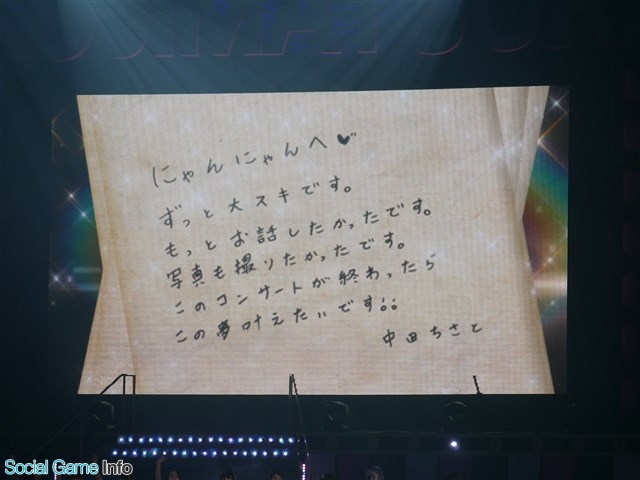 にゃんにゃんへ♥
ずっと大スキです。
もっとお話したかったです。
写真も撮りたかったです。
このコンサートが終わったら
この夢叶えたいです!!
中田ちさと
Social Game Info